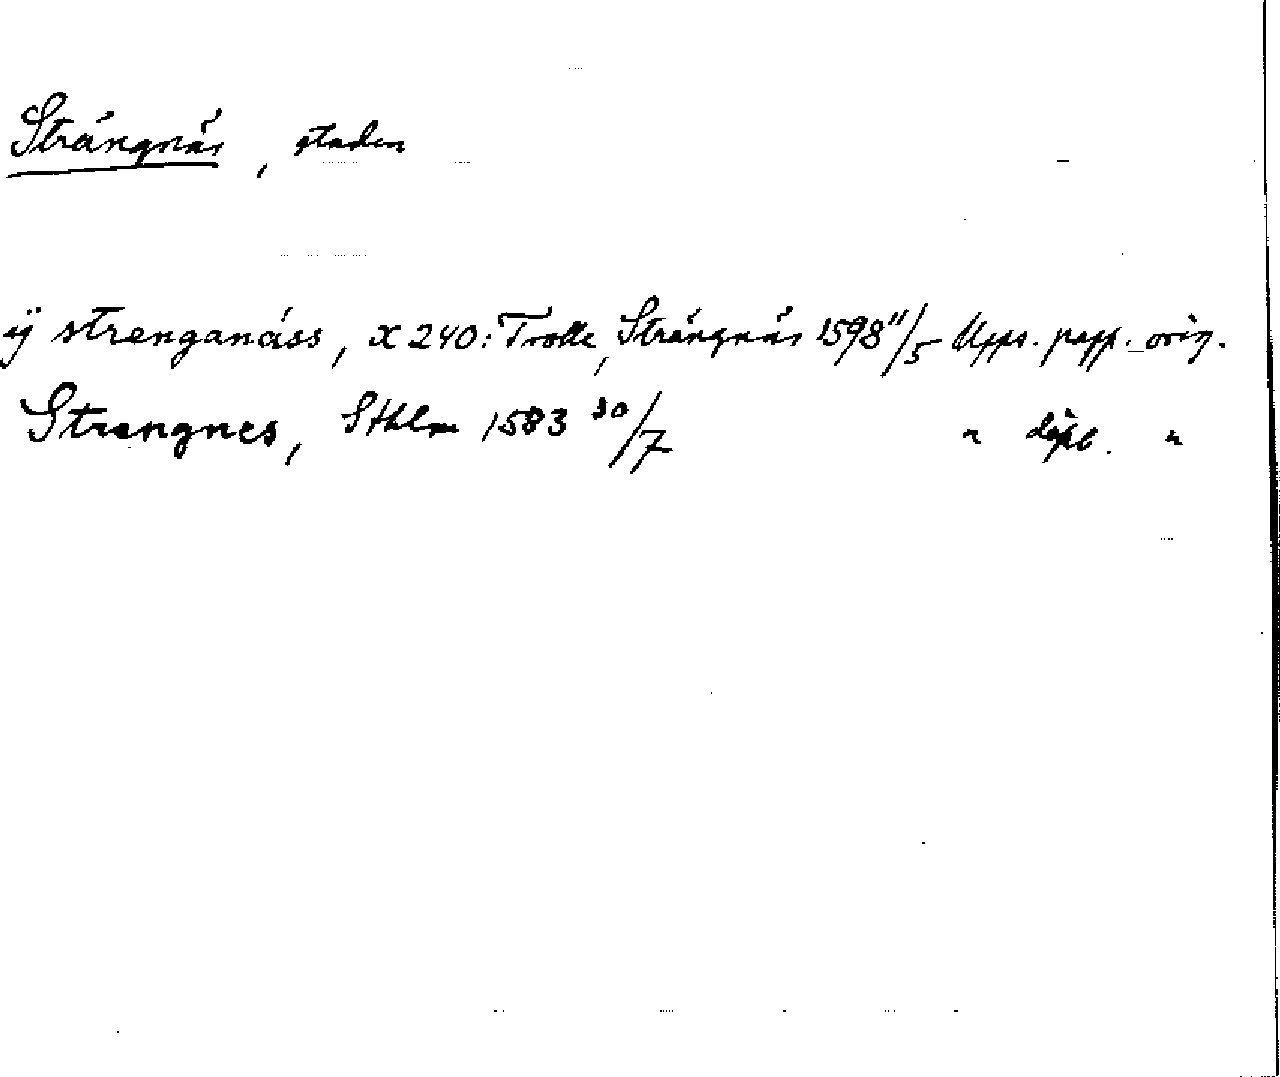 Strängnäs, staden
ij strenganäss, X 240: Trolle, Strängnäs 1598 11/5 Upps. papp. orig.
Strengnes, Sthlm 1583 30/7 " dipl. "